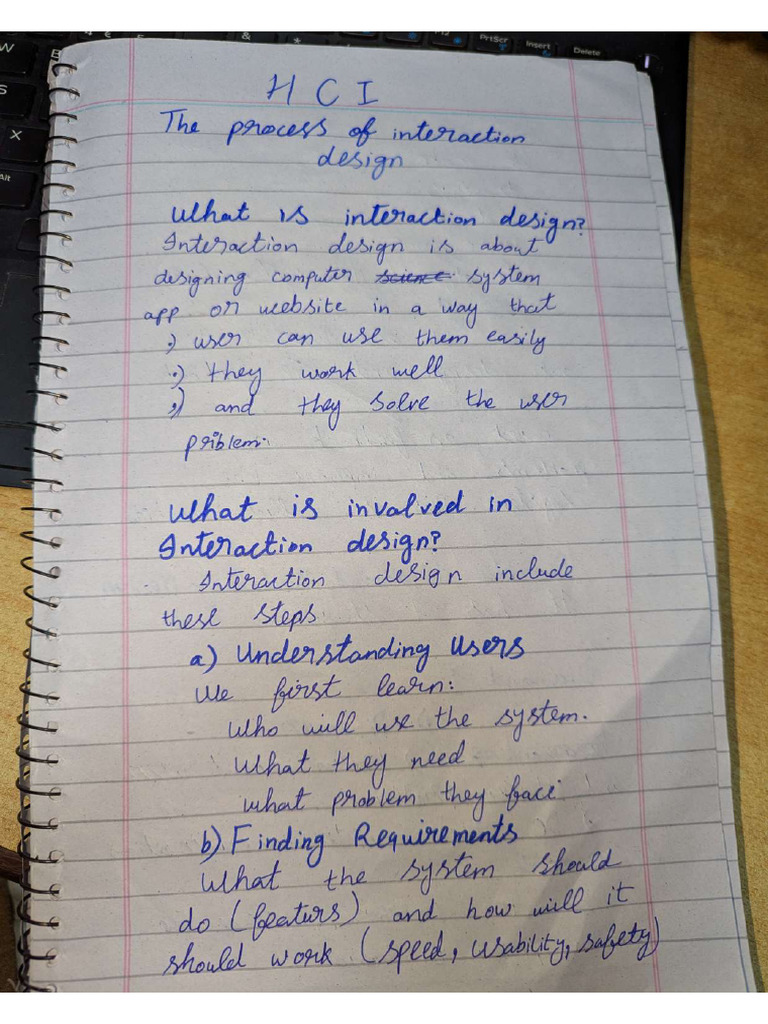 PrtScr
Insert
Delete
&
W
S
X
Alt
H C I
The process of interaction
design
What is interaction design?
Interaction design is about
designing computer science system
app or website in a way that
user can use them easily
they work well
and they solve the user
priblem.
What is involved in
Interaction design?
Interaction design include
these steps
a) Understanding Users
We first learn:
Who will use the system.
What they need
what problem they face
b) Finding Requirements
What the system should
do (featurs) and how will it
should work (speed, usability, safety)